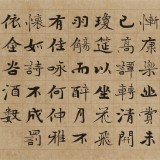 慚康樂幽賞未
已高談轉清開
瓊筵以坐花飛
羽觴而醉月不
有佳咏何伸雅
懷如詩不成罰
依金谷酒數